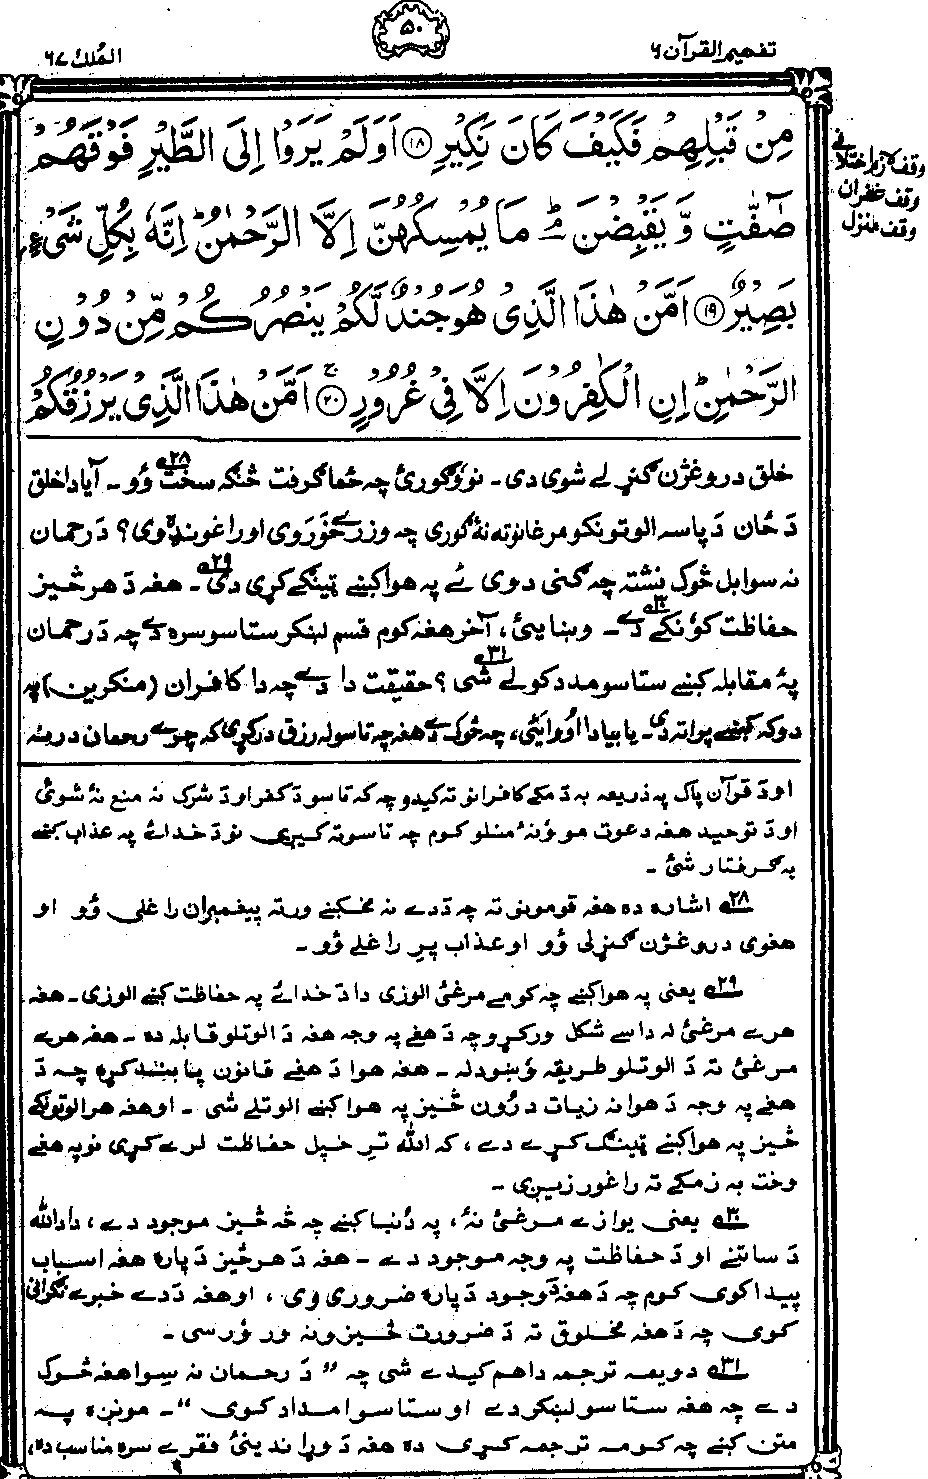 تفهیم القرآن ۶
۵۰
الملک ۶۷
مِنْ قَبْلِهِمْ فَكَيْفَ كَانَ نَكِيْرِ ۝۱۸ اَوَلَمْ يَرَوْا اِلَى الطَّيْرِ فَوْقَهُمْ
صٰٓفّٰتٍ وَّ يَقْبِضْنَ ؔۘ مَا يُمْسِكُهُنَّ اِلَّا الرَّحْمٰنُ ؕ اِنَّهٗ بِكُلِّ شَيْءٍۭ
بَصِيْرٌ ۝۱۹ اَمَّنْ هٰذَا الَّذِيْ هُوَ جُنْدٌ لَّكُمْ يَنْصُرُكُمْ مِّنْ دُوْنِ
الرَّحْمٰنِ ؕ اِنِ الْكٰفِرُوْنَ اِلَّا فِيْ غُرُوْرٍ ۝۲۰ اَمَّنْ هٰذَا الَّذِيْ يَرْزُقُكُمْ
وقف غفران
وقف منزل
خلق دروغژن ګنړلے شوی دی۔ نو ګورئ چه ځما ګرفت څنګه سخت وُو۔ ۲۸ آیا دا خلق
دَ ځان دَ پاسه الوتونکو مرغانو ته نهٔ ګوری چه وزرے خَوَروی او راغونډه وی؟ دَ رحمان
نه سوا بل څوک نشته چه ګنی دوی ئے په هوا کښے ټینګے کړی دی۔ ۲۹ هغه دَ هر څیز
حفاظت کوُنکے دے۔ ۳۰ وښایئ، آخر هغه کوم قسم لښکر ستاسو سره دے چه دَ رحمان
پهٔ مقابله کښے ستاسو مدد کولے شی؟ ۳۱ حقیقت دا دے چه دا کافران (منکرین) په
دوکه کښے پراته دی۔ یا بیا دا اووایئ، چه څوک دے هغه چه تاسو له رزق درکړی که چرے رحمان درنه
او دَ قرآن پاک په ذریعه به دَ مکے کافرانو ته کیدو چه که تاسو دَ کفر او دَ شرک نه منع نهٔ شوئ
او دَ توحید هغه دعوت مو ونهٔ منلو کوم چه تاسو ته کیږی نو دَ خدائے په عذاب کښے
به ګرفتار شئ۔
۲۸ اشاره ده هغه قومونو ته چه دَ دے نه مخکښے ورته پیغمبران راغلی وُو او
هغوی دروغژن ګنړلی وُو او عذاب پرِ راغلے وُو۔
۲۹ یعنی په هوا کښے چه کومے مرغئ الوزی دا دَ خدائے په حفاظت کښے الوزی۔ هغه
هرے مرغئ له داسے شکل ورکړو چه دَ هغے په وجه هغه دَ الوتلو قابله ده۔ هغه هرے
مرغئ ته دَ الوتلو طریقه وښودله۔ هغه هوا دَ هغے قانون پابنده کړه چه دَ
هغے په وجه دَ هوا نه زیات درُون څیز په هوا کښے الوتلے شی۔ او هغه هر الوتونکے
څیز په هوا کښے ټینګ کړے دے، که الله ترِ خپل حفاظت لرے کړی نو په هغے
وخت به زمکے ته راغورزیږی۔
۳۰ یعنی یوازے مرغئ نهٔ، په دُنیا کښے چه څه څیز موجود دے، دا دَ الله
دَ ساتنے او دَ حفاظت په وجه موجود دے۔ هغه دَ هر څیز دَ پاره هغه اسباب
پیدا کوی کوم چه دَ هغهٔ دَ وجود دَ پاره ضروری وی، او هغه دَ دے خبرے نګرانی
کوی چه دَ هغه مخلوق ته دَ ضرورت څیزونه ورورسی۔
۳۱ دویمه ترجمه دا هم کیدے شی چه ”دَ رحمان نه سِوا هغه څوک
دے چه هغه ستاسو لښکر دے او ستاسو امداد کوی“۔ مونږه په
متن کښے چه کومه ترجمه کړی ده هغه دَ وړاندینئ فقرے سره مناسب ده،